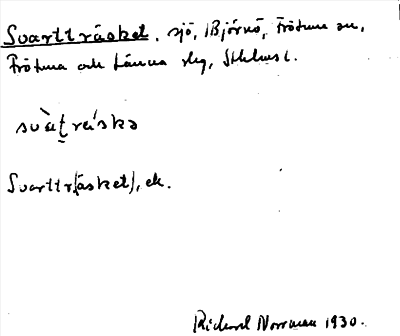 Svartträsket, sjö, Björnö, Frötuna sn,
Frötuna och Länna slg, Sthlms l.
svàt̯ræ̀skə
Svarttr[äsket], ek.
Rickard Norrman 1930.